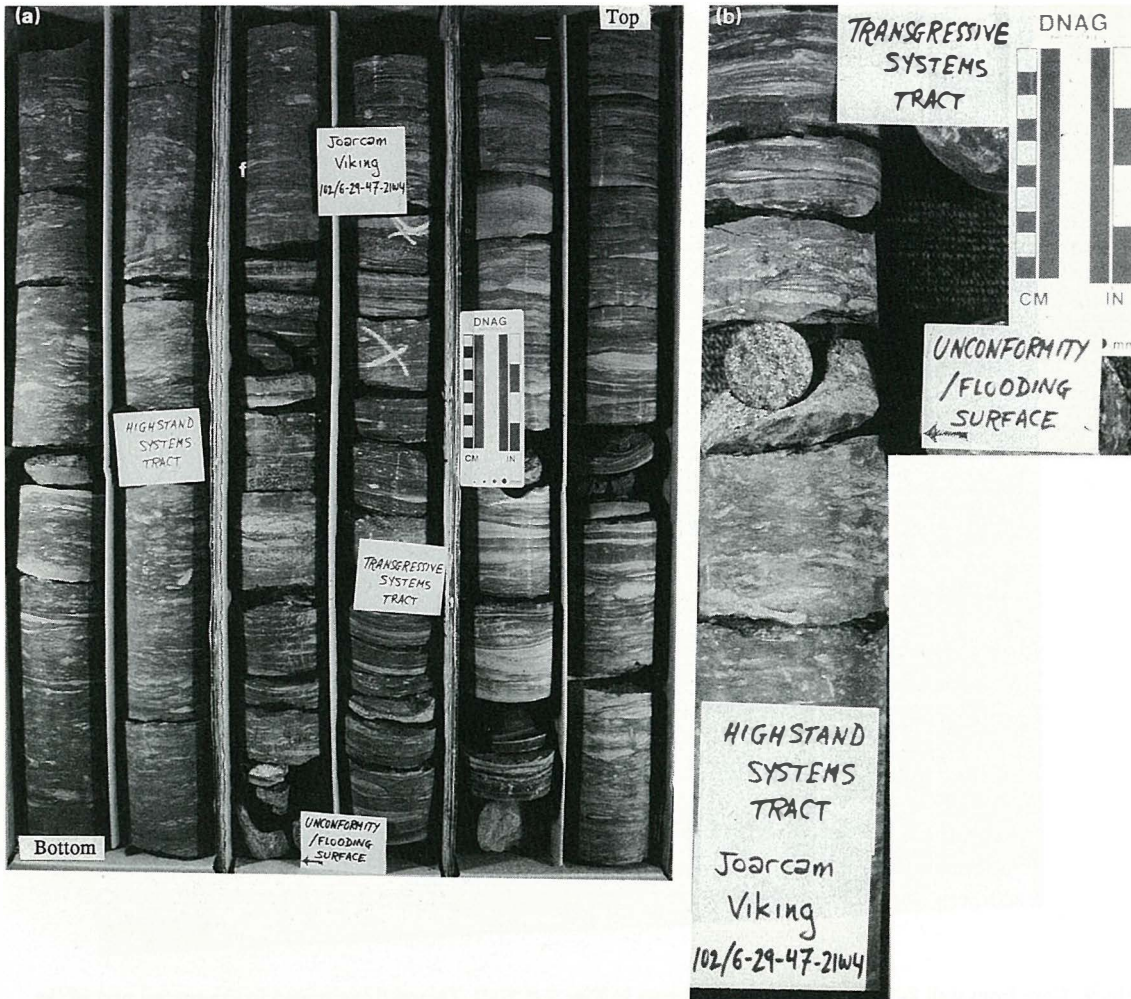 (a)
Top
Joarcam
Viking
102/6-29-47-21W4
f
DNAG
CM
IN
HIGHSTAND
SYSTEMS
TRACT
TRANSGRESSIVE
SYSTEMS
TRACT
UNCONFORMITY
/FLOODING
SURFACE
Bottom
(b)
TRANSGRESSIVE
SYSTEMS
TRACT
DNAG
CM
IN
UNCONFORMITY
/FLOODING
SURFACE
HIGHSTAND
SYSTEMS
TRACT
Joarcam
Viking
102/6-29-47-21W4